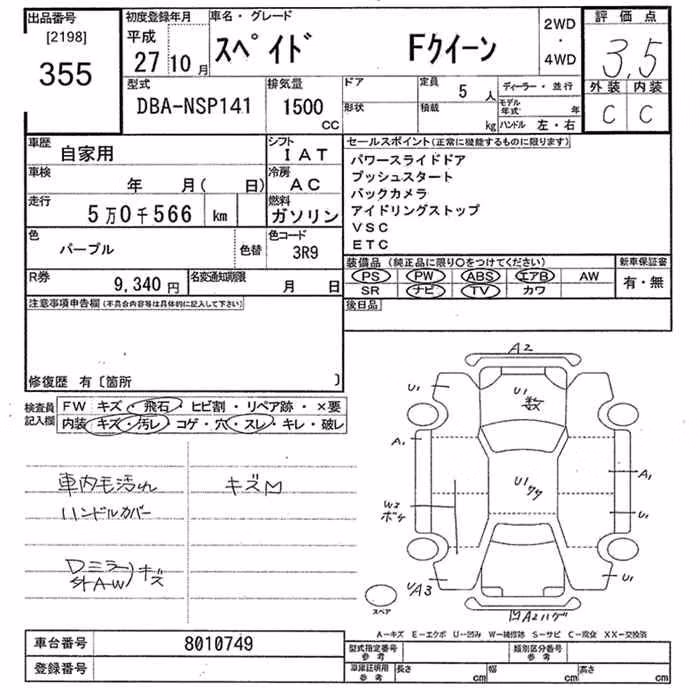 出品番号
[2198]
355
初度登録年月
平成
27 10 月
車名・グレード
スペイド Fクイーン
2WD
・
4WD
評価点
3.5
外装 内装
C C
型式
DBA-NSP141
排気量
1500
CC
ドア
形状
定員
5 人
積載
kg
ディーラー・並行
モデル年式 年
ハンドル 左・右
車歴
自家用
シフト
IAT
車検
年 月( 日)
冷房
AC
走行
5万0千566 km
燃料
ガソリン
色
パープル
色替
色コード
3R9
R券
9,340 円
名変通知期限
月 日
セールスポイント(正常に機能するものに限ります)
パワースライドドア
プッシュスタート
バックカメラ
アイドリングストップ
VSC
ETC
装備品 (純正品に限り○をつけてください)
PS PW ABS エアB AW
SR ナビ TV カワ
新車保証書
有・無
後日品
注意事項申告欄(不具合内容等は具体的に記入して下さい)
修復歴 有〔箇所 〕
検査員記入欄
FW キズ・飛石・ヒビ割・リペア跡・×要
内装 キズ・汚レ・コゲ・穴・スレ・キレ・破レ
車内毛汚れ
ハンドルカバー
Dミラー
外A-W
キズ
キズM
A2
U1
U1
数
A1
U1
A1
W2
ボケ
U1
U/A3
U1
A2ハゲ
スペア
A―キズ E―エクボ U―凹み W―補修跡 S―サビ C―腐食 XX―交換済
車台番号
8010749
登録番号
型式指定番号
参考
類別区分番号
参考
車庫証明用
参考
長さ cm
幅 cm
高さ cm